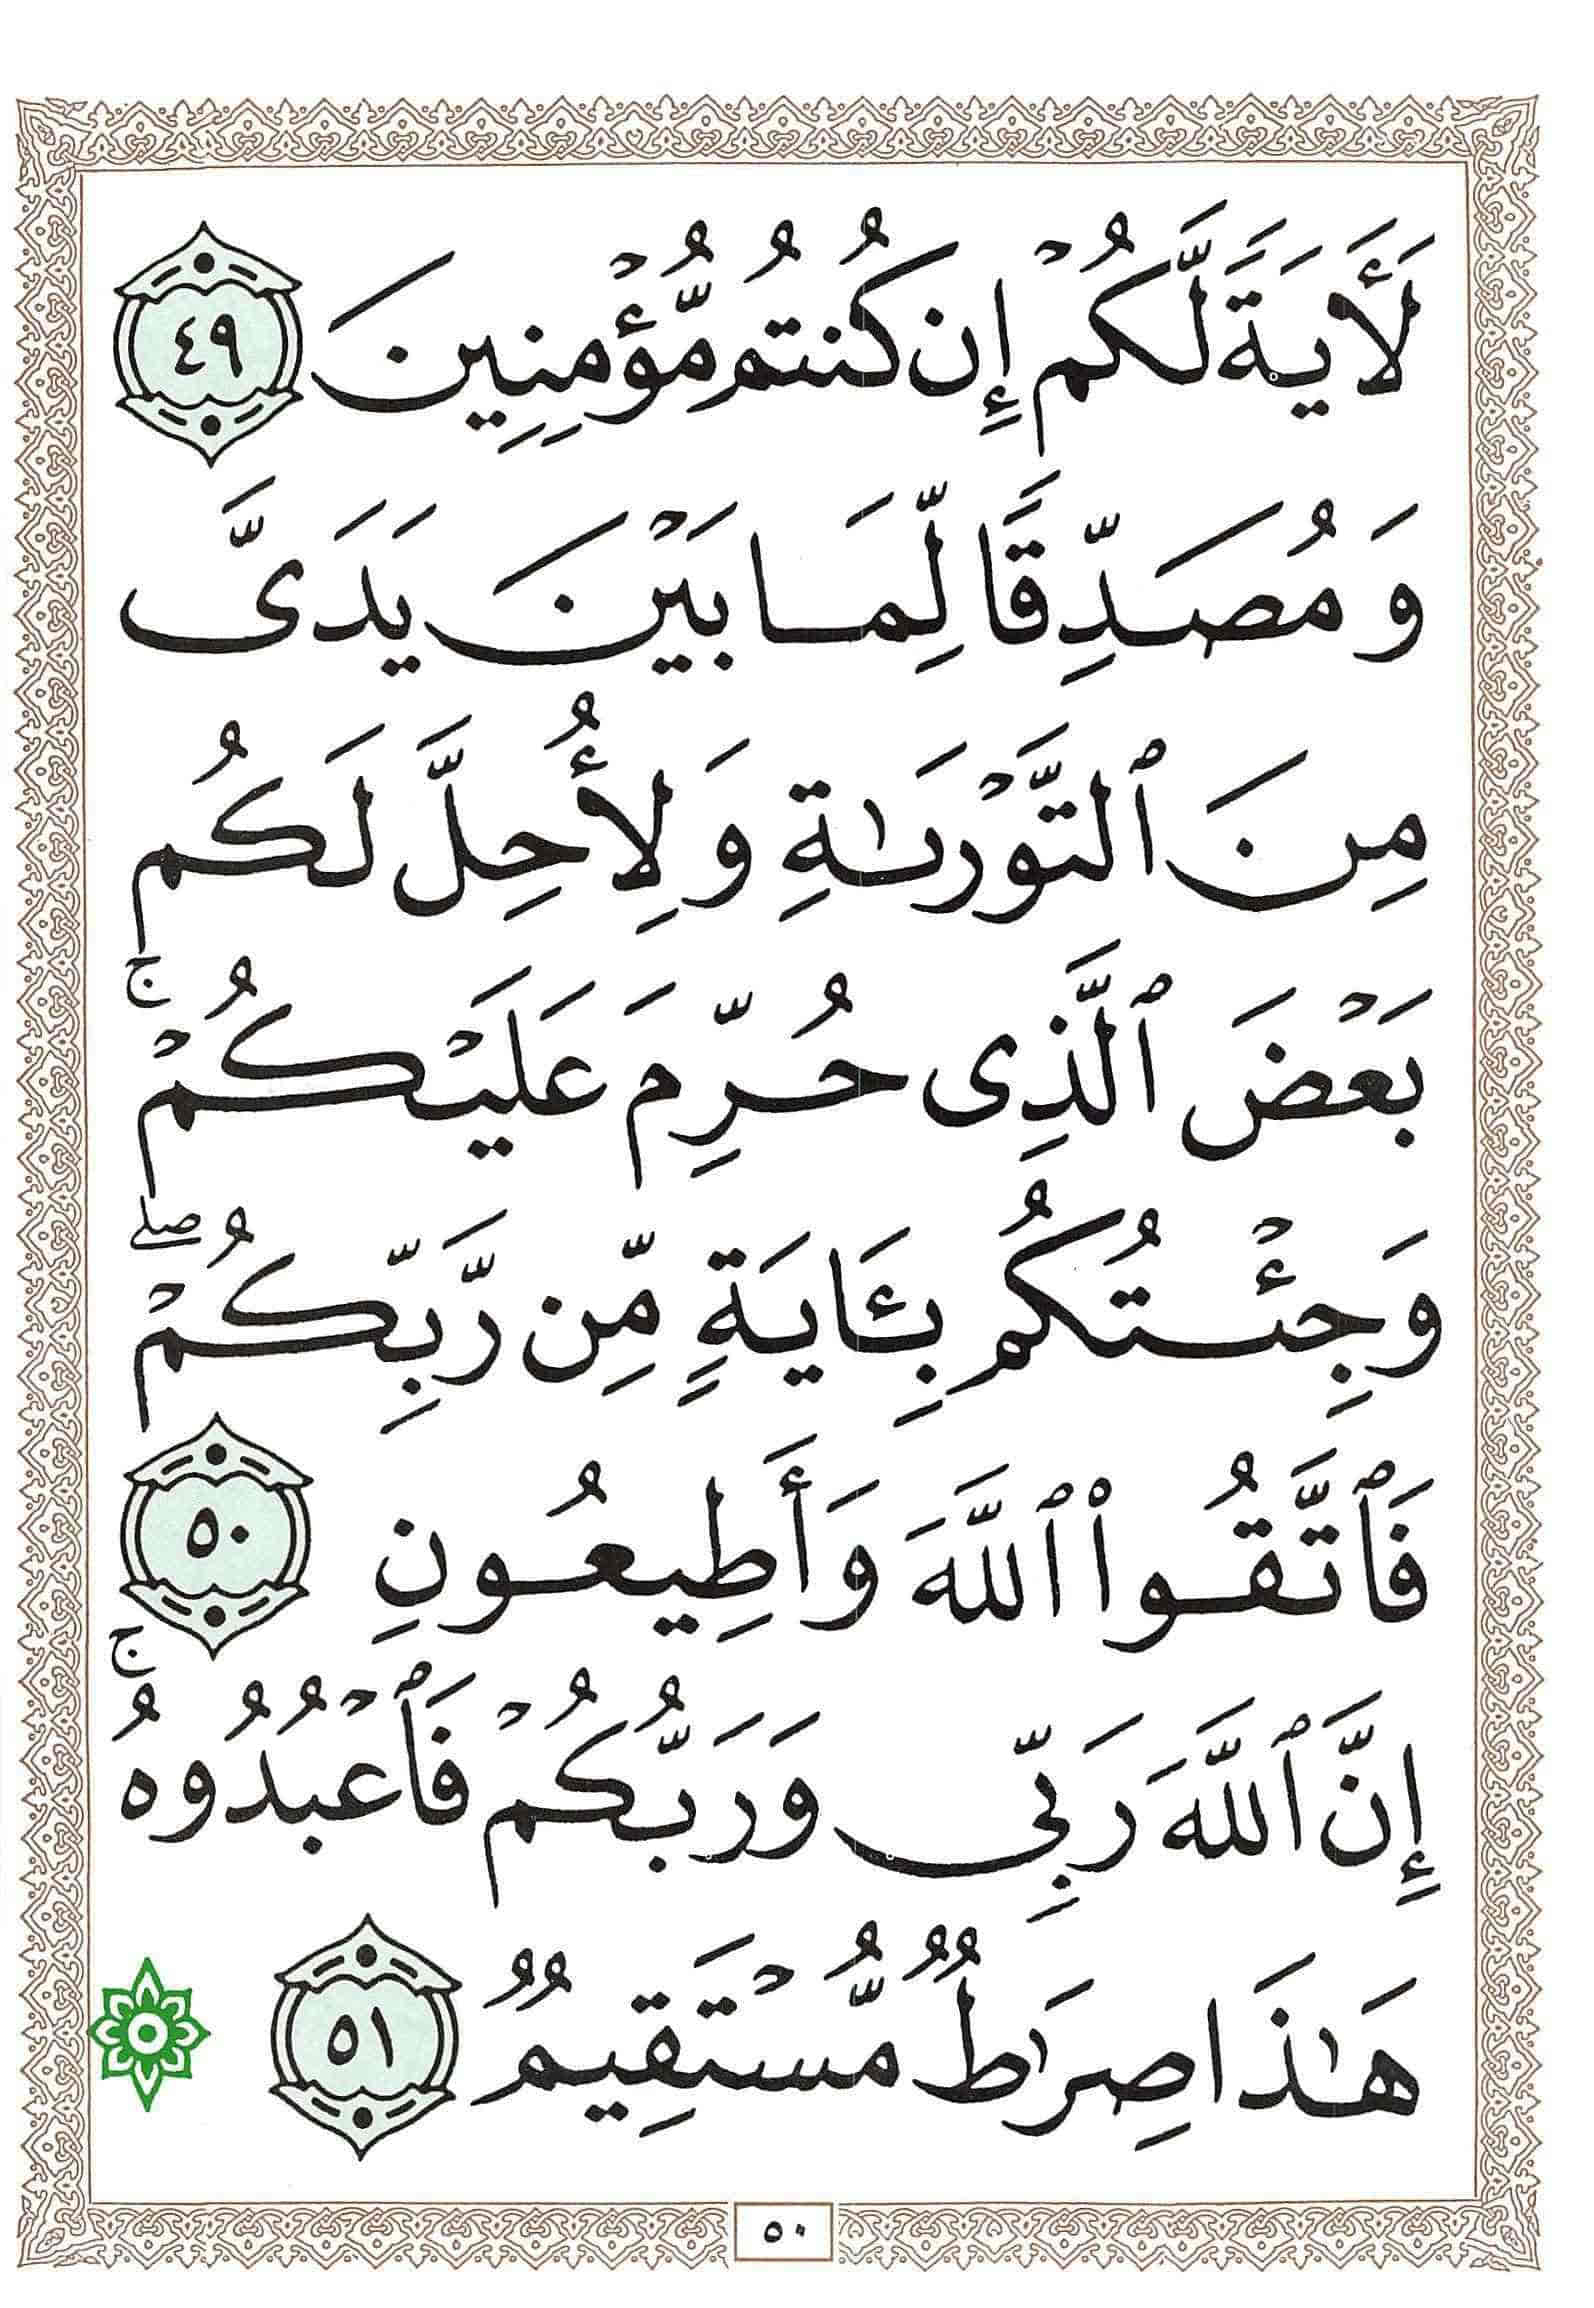 لَأٓيَةً لَّكُمۡ إِن كُنتُم مُّؤۡمِنِينَ ٤٩
وَمُصَدِّقًا لِّمَا بَيۡنَ يَدَيَّ
مِنَ ٱلتَّوۡرَىٰةِ وَلِأُحِلَّ لَكُم
بَعۡضَ ٱلَّذِي حُرِّمَ عَلَيۡكُمۡۚ
وَجِئۡتُكُم بِـَٔايَةٍ مِّن رَّبِّكُمۡۖ
فَٱتَّقُواْ ٱللَّهَ وَأَطِيعُونِ ٥٠
إِنَّ ٱللَّهَ رَبِّي وَرَبُّكُمۡ فَٱعۡبُدُوهُۚ
هَٰذَا صِرَٰطٌ مُّسۡتَقِيمٌ ٥١
٥٠